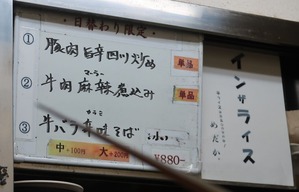 日替わり限定
① 豚肉旨辛四川炒め 単品
マーラー
② 牛肉麻辣煮込み 単品
カラミ
③ 牛バラ辛味そば
中+100円 大+200円 ¥880-
インザライス
めだか